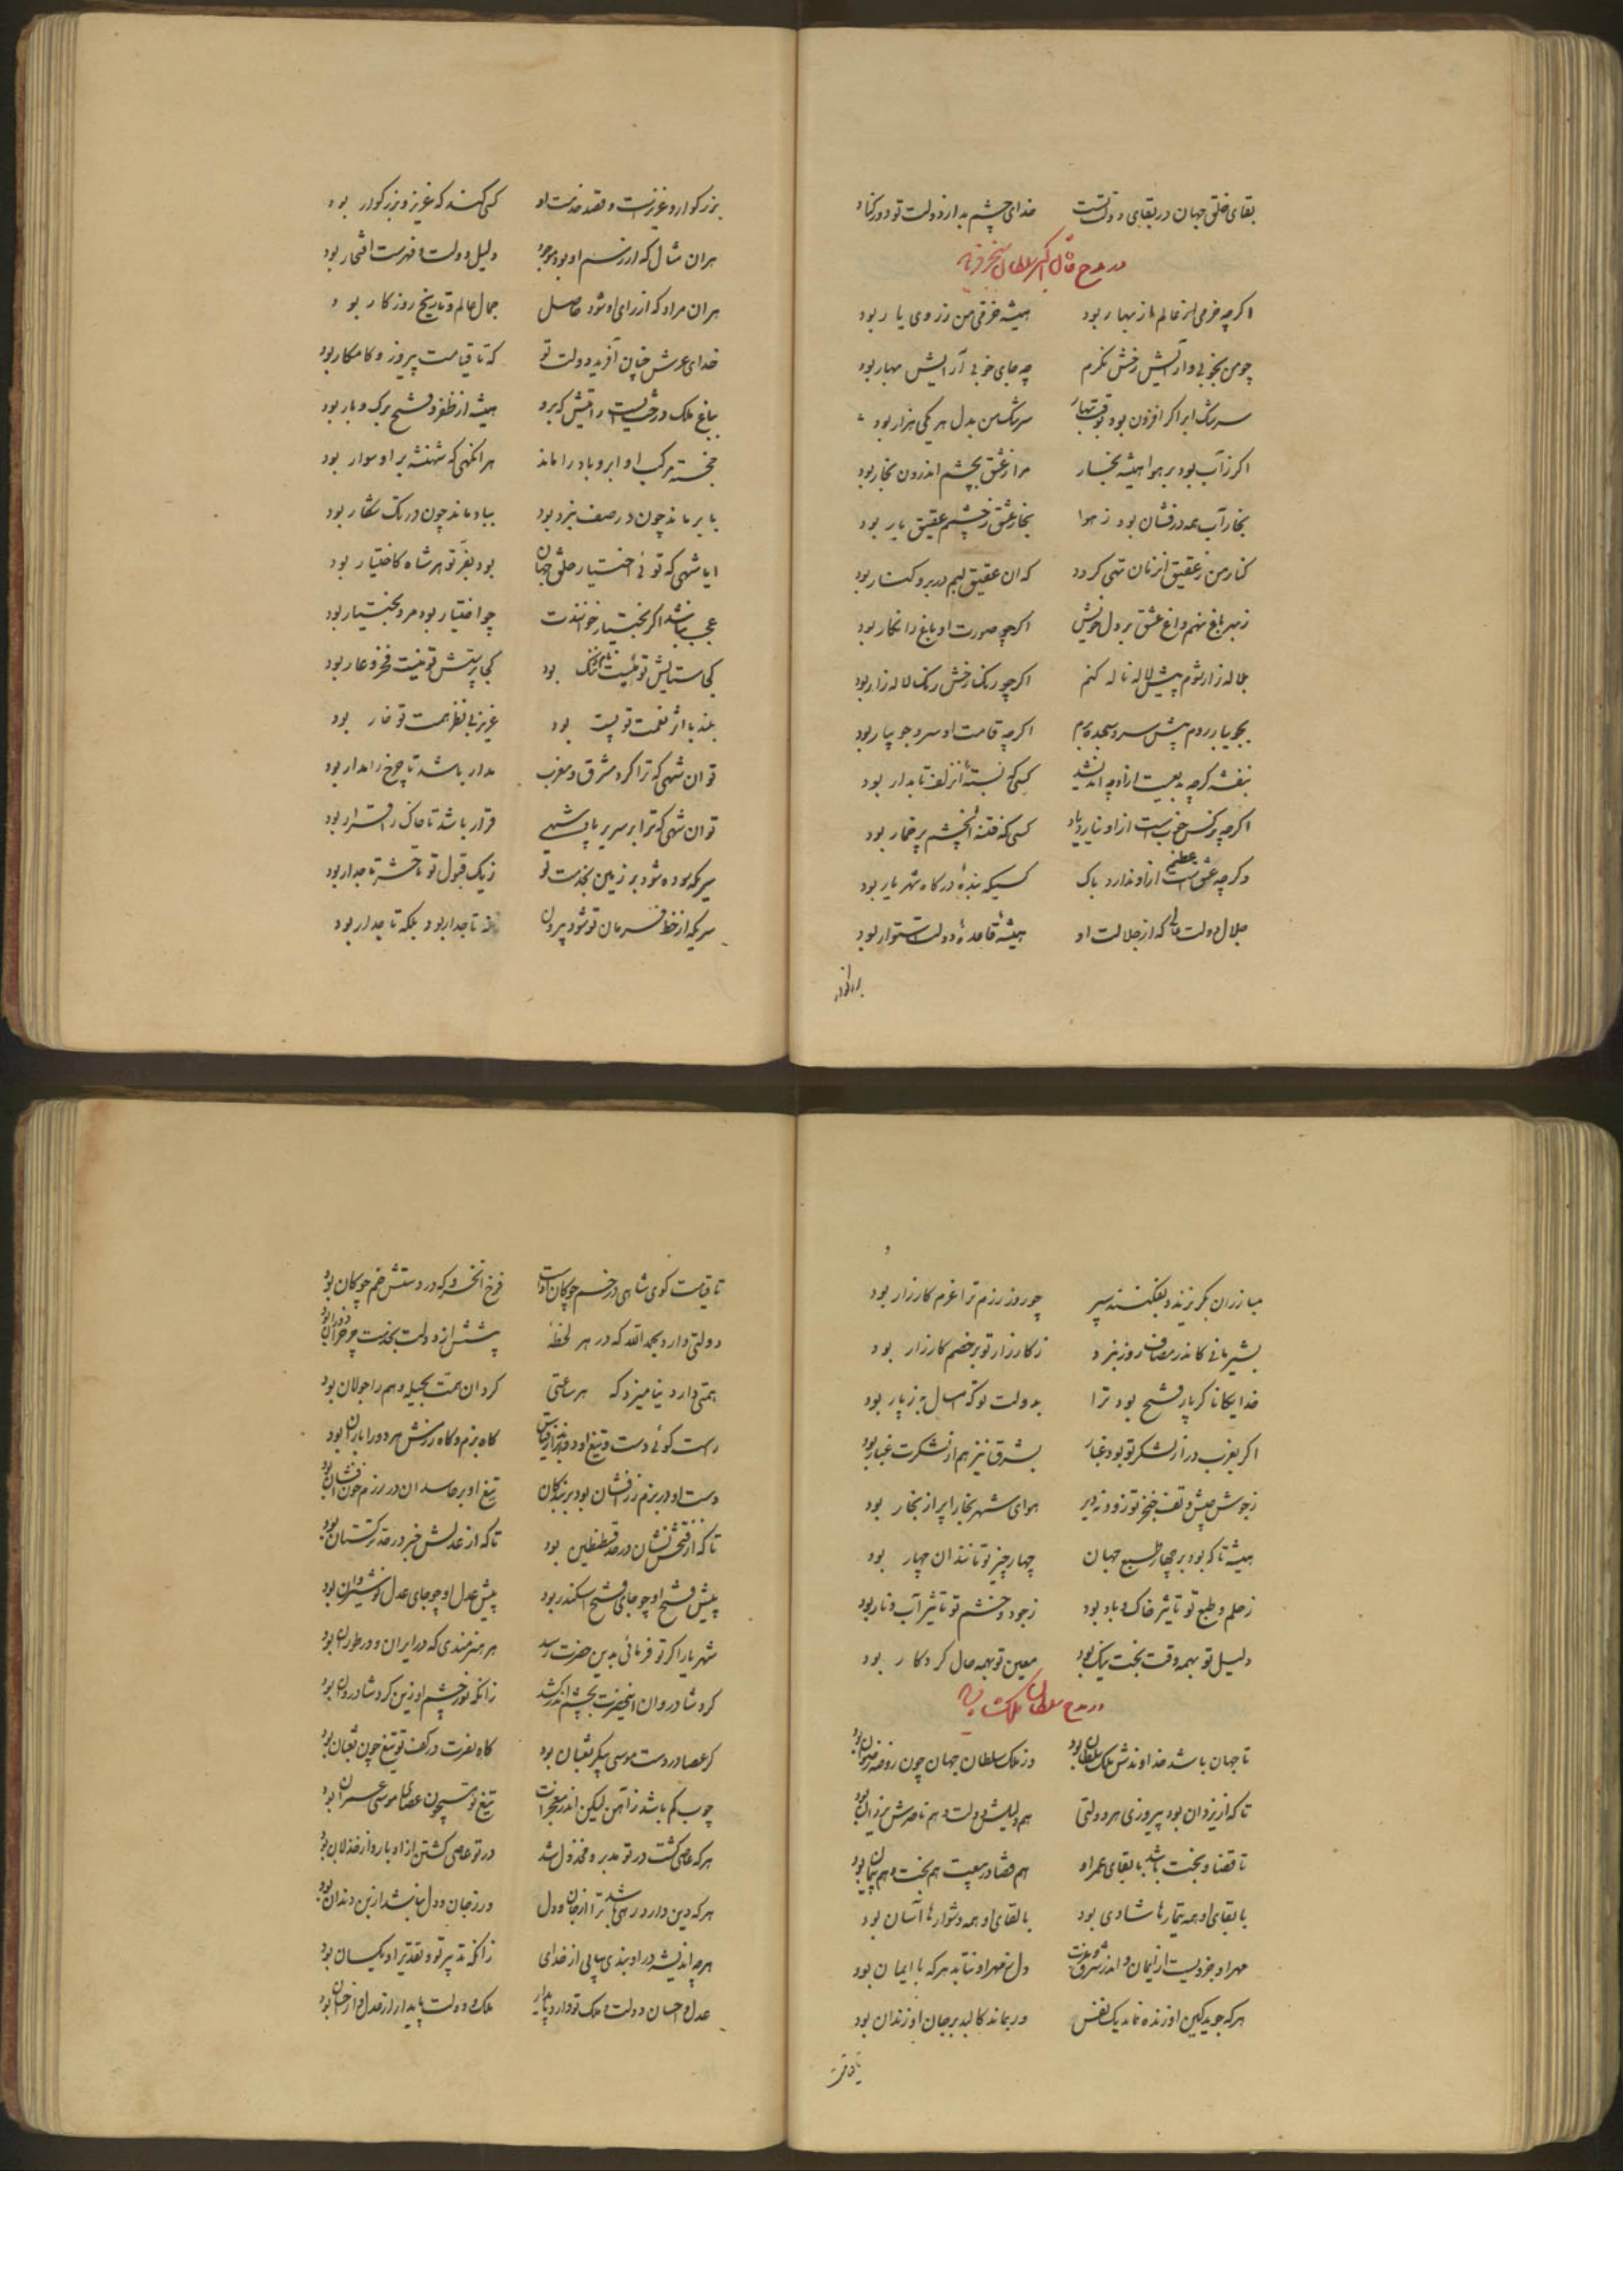 بقای خلق جهان در بقای دولت تست خدای چشم بد از دولت تو دور کناد
در مدح سلطان سنجر
اگرچه خرمی از عالم از بهار بود همیشه خرمی من ز روی یار بود
چو من بخوبی و آرایش رخش نگرم چه جای خوبی آرایش بهار بود
سرشک ابر اگر افزون بود بوقت بهار سرشک من بدل هر یکی هزار بود
اگر ز آب بود بر هوا همیشه بخار مرا ز عشق بچشم اندرون بخار بود
بخار آب همه درفشان بود ز هوا بخار عشق ز چشمم عقیق بار بود
کنار من ز عقیق آن زمان تهی گردد که آن عقیق لبم در بر و کنار بود
ز بهر باغ نهم داغ عشق بر دل خویش اگر چو صورت او باغ را نگار بود
بلاله زار شوم پیش لاله ناله کنم اگر چو رنگ رخش رنگ لاله زار بود
بجویبار روم پیش سرو سجده برم اگرچه قامت او سرو جویبار بود
بنفشه گرچه بدیعست ازو چه اندیشد کسی که بسته آن زلف تابدار بود
اگرچه نرگس خوبست ازو نیارد یاد کسی که فتنه آن چشم پرخمار بود
وگرچه عشق عظیم است ازو ندارد باک کسیکه بنده درگاه شهریار بود
جلال دولت عالی که از جلالت او همیشه قاعده دولت استوار بود
بزرگوار
بزرگوار و عزیزست و قصد خدمت او کسی کند که عزیز و بزرگوار بود
هر آن مثال که از رسم او بود موجود دلیل دولت و فهرست افتخار بود
هر آن مراد که از رای او شود حاصل جمال عالم و تاریخ روزگار بود
خدای عرش چنان آفرید دولت تو که تا قیامت پیروز و کامکار بود
بباغ ملک درختیست رایتش که برو همیشه از ظفر و فتح برگ و بار بود
خجسته مرکب او ابر و باد را ماند هر آنگهی که شهنشه بر او سوار بود
بابر ماند چون در صف نبرد بود بباد ماند چون در تک شکار بود
ایا شهی که توئی اختیار خلق جهان بود بفر تو هر شاه کاختیار بود
عجب نباشد اگر بختیار خوانندت چو اختیار بود مرد بختیار بود
کجا ستایش تو نیست نام ننگ بود کجا پرستش تو نیست فخر و عار بود
بلند با اثر نعمت تو پست بود عزیز بی نظر همت تو خار بود
تو آن شهی که ترا گرد مشرق و مغرب مدار باشد تا چرخ را مدار بود
تو آن شهی که ترا بر سریر پادشهی قرار باشد تا خاک را قرار بود
سریکه سوده شود بر زمین بخدمت تو ز یک قبول تو تا حشر تاجدار بود
سریکه از خط فرمان تو شود بیرون نه تاجدار بود بلکه تاجدار بود
مبارزان بگریزند و بفکنند سپر چو روز رزم ترا عزم کارزار بود
بشیر مانی کاندر مصاف روز نبرد ز کارزار تو بر خصم کار زار بود
خدایگانا گر پار فتح بود ترا بدولت تو که امسال به ز پار بود
اگر بغرب در از لشکر تو بود غبار بشرق نیز هم از لشکرت غبار بود
ز جوش جیش و تف خنجر تو زود نه دیر هوای شهر بخارا پر از بخار بود
همیشه تا که بود بر چهار طبع جهان چهار چیز تو مانند آن چهار بود
ز حلم و طبع تو تاثیر خاک و باد بود ز جود و خشم تو تاثیر آب و نار بود
دلیل تو بهمه وقت بخت نیک بود معین تو بهمه حال کردگار بود
در مدح سلطان ملکشاه
تا جهان باشد خداوندش ملک سلطان بود وز ملک سلطان جهان چون روضه رضوان بود
تا که از یزدان بود پیروزی هر دولتی هم دلیلش دولت و هم ناصرش یزدان بود
تا قضا و بخت باشد با بقای عمر او هم قضا در بیعت هم بخت در پیمان بود
با بقای او همه تیمارها شادی بود با لقای او همه دشوارها آسان بود
مهر او جزویست از ایمان و اندر شرق و غرب دل ز مهر او نتابد هر که با ایمان بود
هر که جوید کین او زنده نماند یک نفس ور بماند کالبد بر جان او زندان بود
تا قیامت
تا قیامت گوی شاهی در خم چوگان اوست فرخ آن خسرو که در دستش خم چوگان بود
دولتی دارد بحمدالله که در هر لحظه پیشش از دولت بخدمت
همتی دارد بنامیزد که هر ساعتی گرد آن همت بحیله وهم را جولان بود
راست گوئی دست و تیغ او گاه بزم و گاه رزمش هر دو را باران بود
دست او در بزم زر افشان بود بر بندگان تیغ او بر حاسدان در رزم خون افشان بود
تا که از فتحش نشان در حد قسطنطین بود تا که از عدلش خبر در حد ترکستان بود
پیش فتح او چو جای فتح اسکندر بود پیش عدل او چو جای عدل نوشیروان بود
شهریارا گر تو فرمائی بدین حضرت رسد هر هنرمندی که در ایران و در توران بود
گرد شادروان این حضرت بچشم اندر کشد زانکه نور چشم او زین گرد شادروان بود
گر عصا در دست موسی پیکر ثعبان بود گاه نصرت در کف تو تیغ چون ثعبان بود
چوب کم باشد ز آهن لیکن اندر معجزات تیغ تو همچون عصای موسی عمران بود
هر که عاصی گشت در تو مدبر و مخذول شد در تو عاصی گشتن از ادبار و از خذلان بود
هر که دین دارد رهی باشد ترا از جان و دل ور ز جان و دل نباشد از بن دندان بود
هر چه اندیشی در او بندی بیابی از خدای زانکه تدبیر تو و تقدیر او یکسان بود
عدل و احسان دولت و ملک تو دارد پایدار ملک و دولت پایدار از عدل و از احسان بود